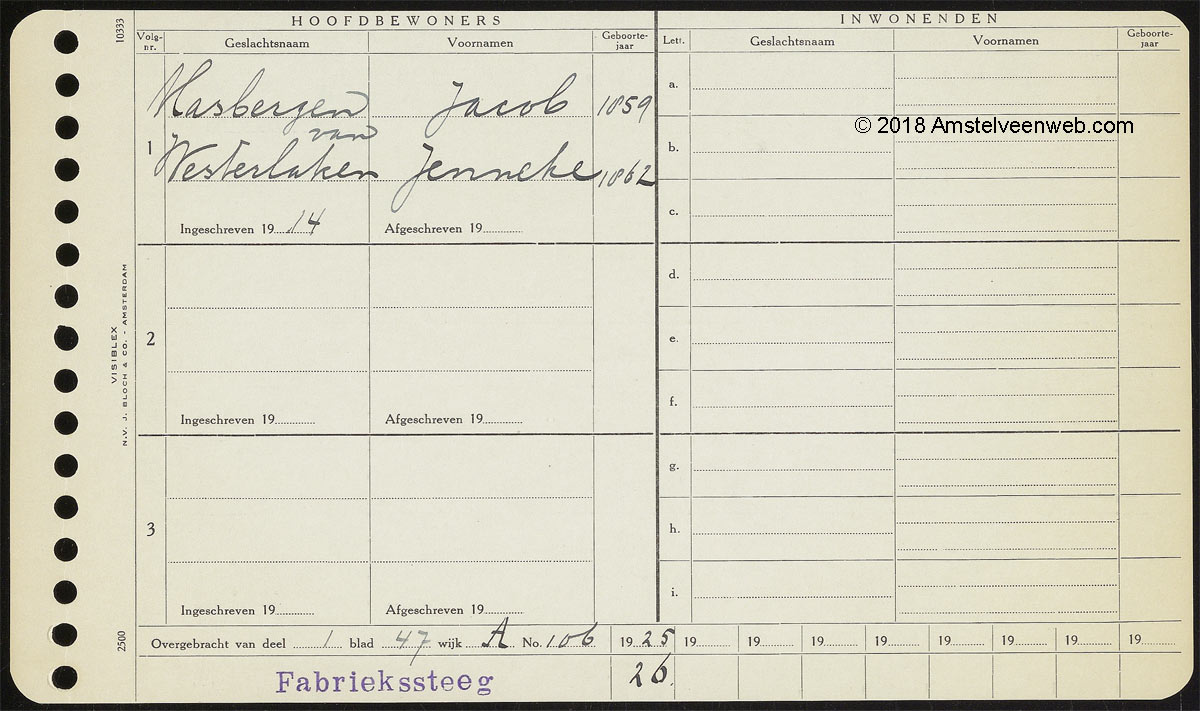 HOOFDBEWONERS
INWONENDEN
10333
Volg-nr. Geslachtsnaam Voornamen Geboorte-jaar
Lett. Geslachtsnaam Voornamen Geboorte-jaar
Hasbergen Jacob 1859
van
1 Westerlaken Jenneke 1862
Ingeschreven 19 14 Afgeschreven 19
a.
© 2018 Amstelveenweb.com
b.
c.
2
Ingeschreven 19 Afgeschreven 19
d.
e.
f.
3
Ingeschreven 19 Afgeschreven 19
g.
h.
i.
VISIBLEX
N.V. J. BLOCH & CO. - AMSTERDAM
2500
Overgebracht van deel 1 blad 47 wijk A No. 106 19 25 19 19 19 19 19 19 19
Fabriekssteeg 26.